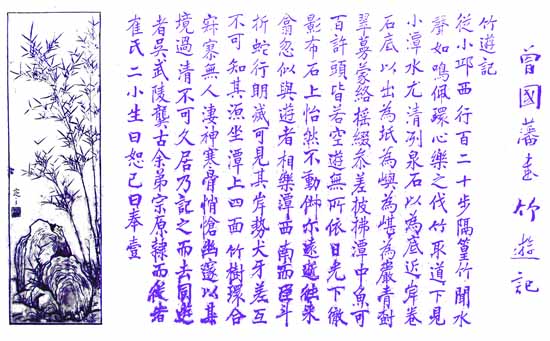 曾國藩書竹遊記
竹遊記
從小邱西行百二十步隔篁竹聞水
聲如鳴佩環心樂之伐竹取道下見
小潭水尤清冽泉石以為底近岸卷
石底以出為坻為嶼為嵁為巖青樹
翠蔓蒙絡搖綴參差披拂潭中魚可
百許頭皆若空遊無所依日光下徹
影布石上怡然不動俶尔遠逝往來
翕忽似與遊者相樂潭西南而望斗
折蛇行明滅可見其岸勢犬牙差互
不可知其源坐潭上四面竹樹環合
寂寥無人淒神寒骨悄愴幽邃以其
境過清不可久居乃記之而去同遊
者吳武陵龔古余弟宗原隸而從者
崔氏二小生曰恕己曰奉壹